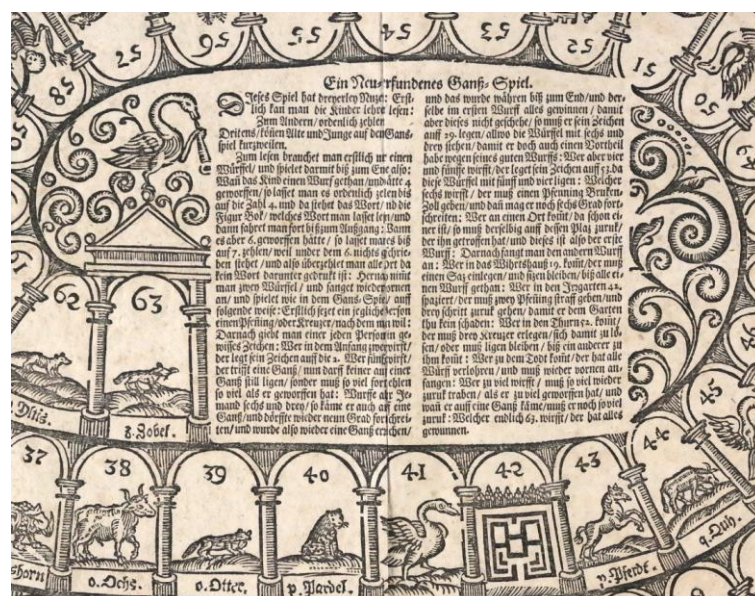 58
57
56
55
54
53
52
51
50
Ein Neu-erfundenes Ganß-Spiel.
Dieses Spiel hat dreyerley Nuze: Erst-
lich kan man die Kinder lehrẽ lesen:
Zum Andern/ ordenlich zehlen
Dritens/ köũen Alte und Junge auf den Gans-
spiel kurzweilen.
Zum lesen brauchet man erstlich nur einen
Würffel/ und spielet darmit biß zum Ene also:
Wañ das Kind einen Wurf gethan/ und hätte 4
geworffen/ so lasset man es ordenlich zehlen biß
auf die Zahl 4. und da stehet das Wort/ und die
Figur Bok/ welches Wort man lasset lesen/ und
dann fahret man fort biß zum Außgang: Wann
es aber 6. geworffen hätte/ so lasset man es biß
auf 7. zehlen/ weil under dem 6. nichts geschrie-
ben stehet/ und also überzehlet man alle ort da
kein Wort darunter gedrukt ist: Hernach nimt
man zwey Würffel/ und fanget wieder vornen
an/ und spielet wie in dem Gans-Spiel/ auff
folgende weise: Erstlich sezet ein jegliche Person
einen Pfeñig/ oder Kreuzer/ nach dem man wil:
Darnach giebt man einer jeden Person ein ge-
wisses Zeichen: Wer in dem Anfang zwey wirfft/
der legt sein Zeichen auff die 2. Wer fünf wirfft/
der trifft eine Ganß/ nun darff keiner auf einer
Ganß still ligen/ sonder muß so viel fortzehlen
so viel als er geworffen hat: Wurffe aber Je-
mand sechs und drey/ so käme er auch auf eine
Ganß/ und dörffte wieder neun Grad forschrei-
ten/ und wurde also wieder eine Ganß erreichen/
und das wurde währen biß zum End/ und der-
selbe im ersten Wurff alles gewinnen/ damit
aber dieses nicht geschehe/ so muß er sein Zeichen
auff 29. legen/ allwo die Würffel mit sechs und
drey stehen/ damit er doch auch einen Vortheil
habe wegen seines guten Wurffs: Wer aber vier
und fünffe wirfft/ der leget sein Zeichen auff 53. da
diese Würffel mit fünff und vier ligen: Welcher
sechs wirfft/ der muß einen Pfenning Bruken-
Zoll geben/ und dañ mag er noch sechs Grad fort-
schreiten: Wer an einen Ort kom̃t/ da schon ei-
ner ist/ so muß derselbig auff dessen Plaz zuruk/
der ihn getroffen hat/ und dieses ist also der erste
Wurff: Darnach fangt man den andern Wurff
an: Wer in das Wirtshauß 19. kom̃t/ der muß
einen Saz einlegen/ und ligen bleiben/ biß alle ei-
nen Wurff gethan: Wer in den Irrgarten 42.
spaziert/ der muß zwey Pfeñig straff geben/ und
drey schritt zuruk gehen/ damit er dem Garten
thu kein schaden: Wer in den Thurn 52. kom̃t/
der muß drey Kreuzer erlegen/ sich damit zu lö-
sen/ oder muß ligen bleiben/ biß ein anderer zu
ihm kom̃t: Wer zu dem Todt kom̃t/ der hat alle
Würff verlohren/ und muß wieder vornen an-
fangen: Wer zu viel wirfft/ muß so viel wieder
zuruk traben/ als er zu viel geworffen hat/ und
wañ er auff eine Ganß käme/ muß er noch so viel
zuruk: Welcher endlich 63. wirfft/ der hat alles
gewunnen.
62
63
z. Zobel.
45
44
37
38
39
40
41
42
43
shorn
o. Ochs.
o. Otter.
p. Pardel.
p. Pferdt.